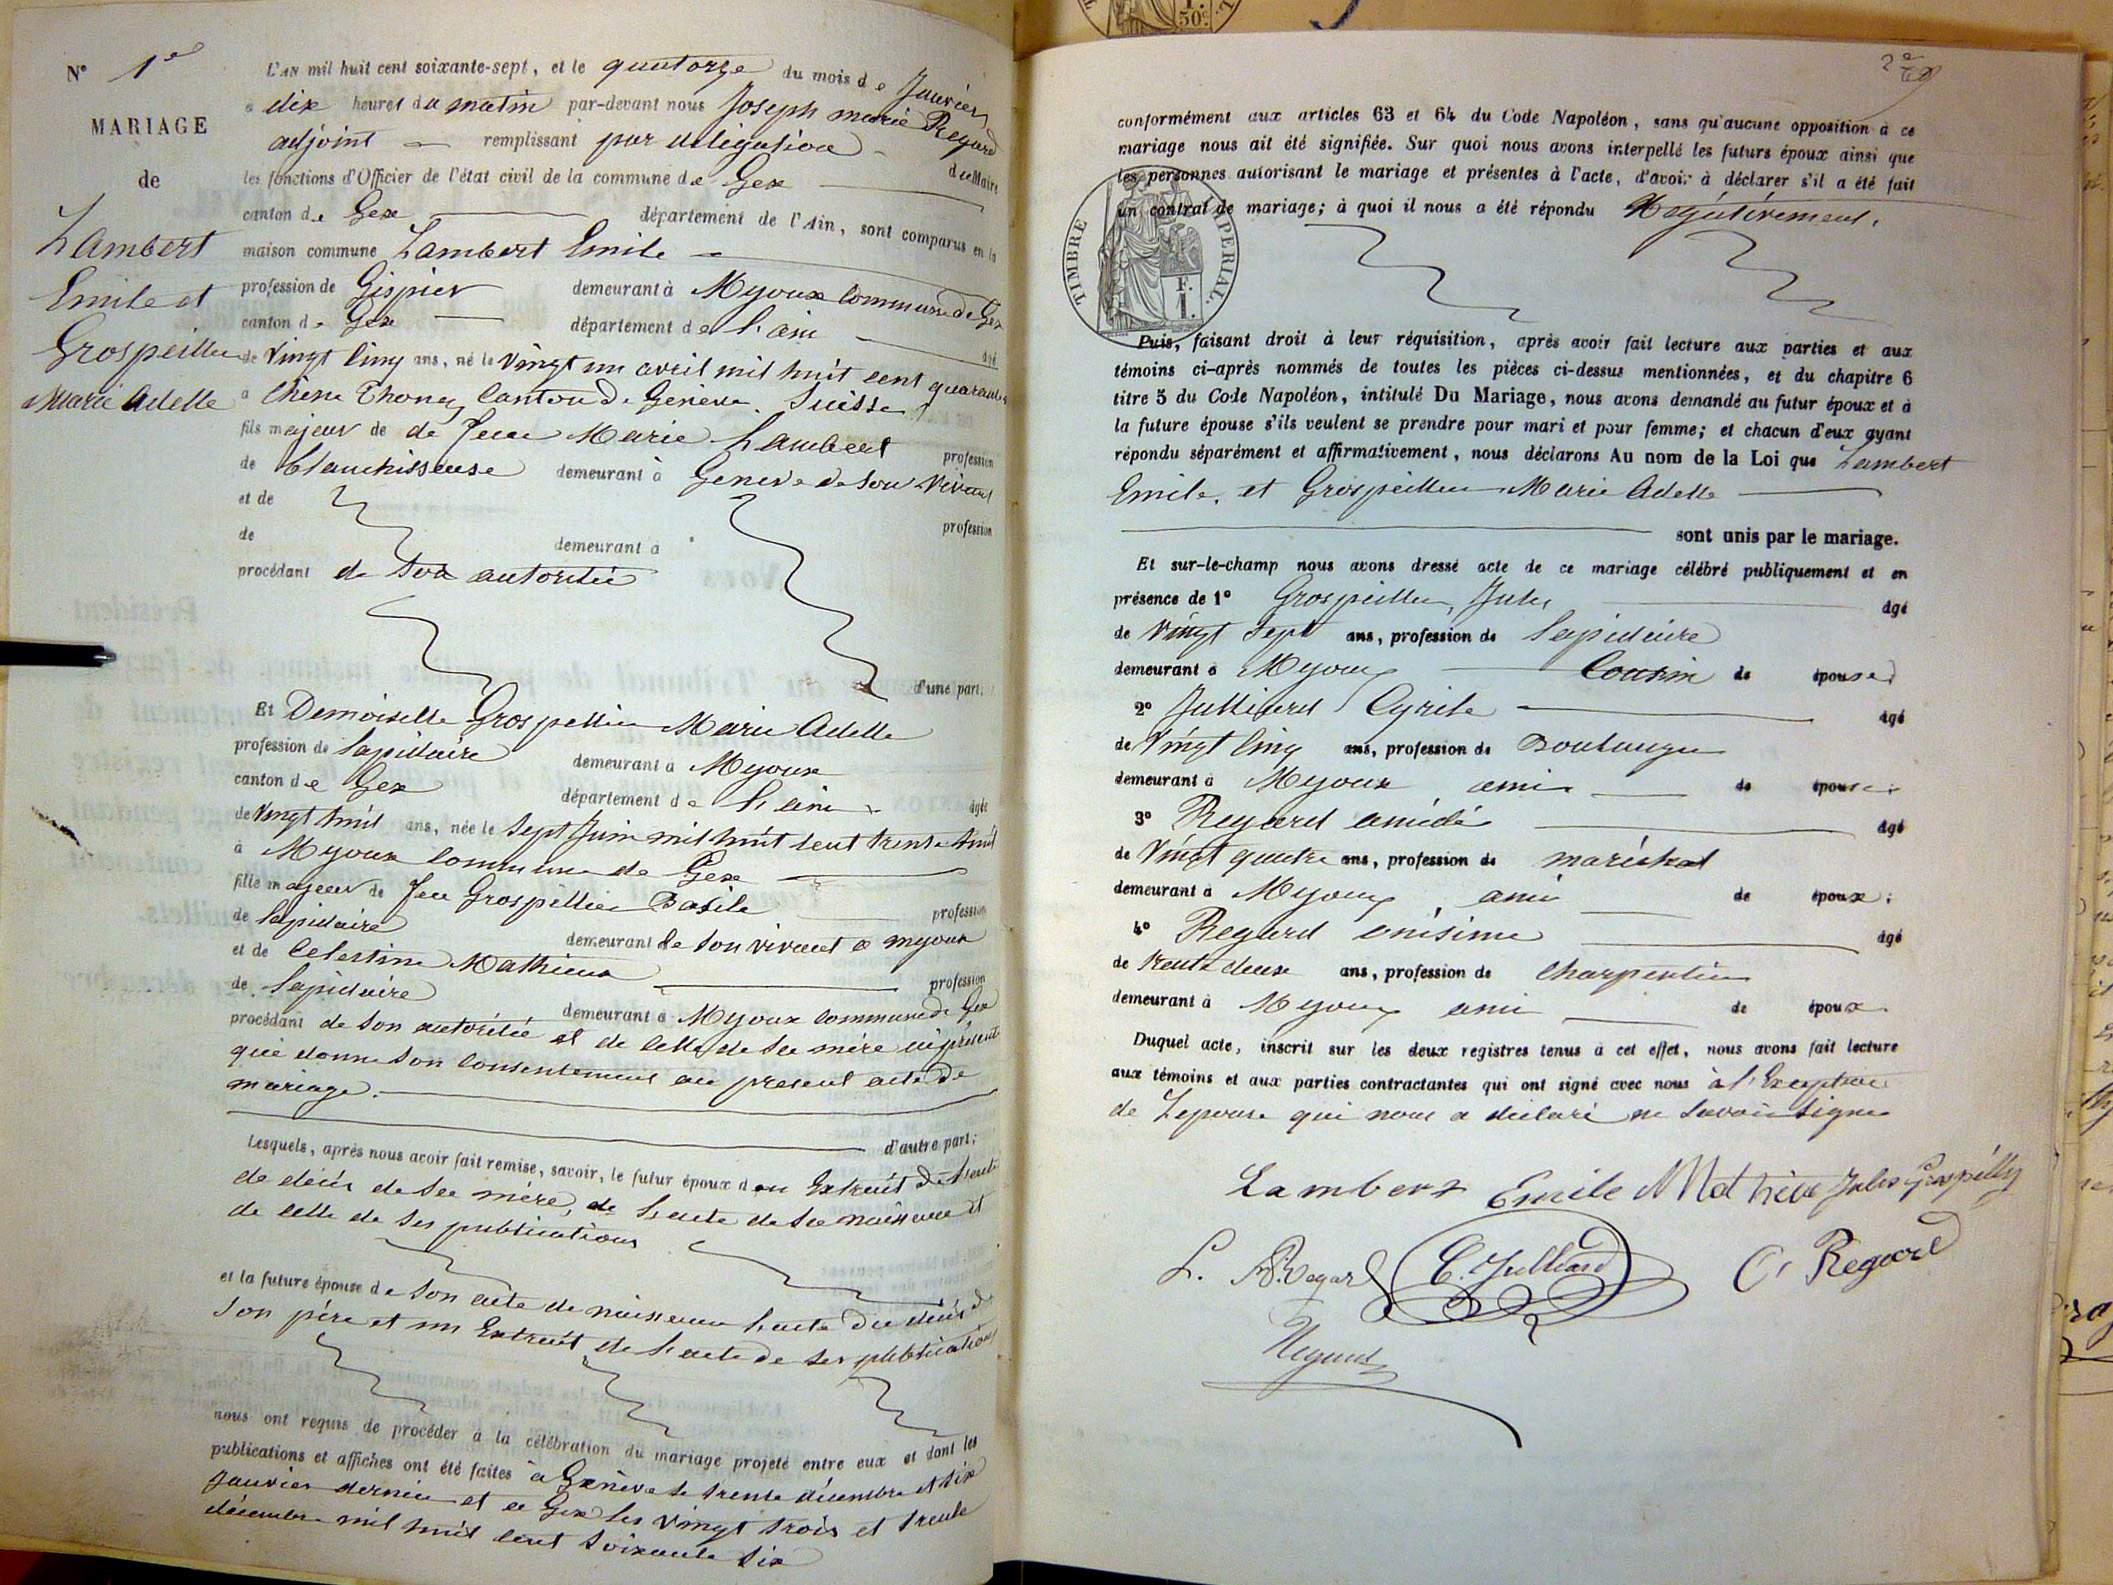 N° 1er
MARIAGE
de
Lambert
Emile et
Grospellier
Marie Adelle
L'AN mil huit cent soixante-sept, et le quatorze du mois de Janvier
à dix heures du matin par-devant nous Joseph marie Regard
adjoint remplissant par délégation du Maire
les fonctions d'Officier de l'état civil de la commune de Gex
canton de Gex département de l'Ain, sont comparus en la
maison commune Lambert Emile
profession de Gispier demeurant à Myoux commune de Gex
canton de Gex département de l'ain âgé
de Vingt Cinq ans, né le Vingt un avril mil huit cent quarante
à Chene Thonex Canton de Genève. Suisse
fils majeur de de feue Marie Lambert profession
de blanchisseuse demeurant à Geneve de son vivant
et de profession
de demeurant à
procédant de son autoritée
d'une part,
Et Demoiselle Grospellier Marie Adelle
profession de lapidaire demeurant à Myoux
canton de Gex département de l'ain âgée
de Vingt huit ans, née le Sept Juin mil huit cent trente huit
à Myoux commune de Gex
fille majeur de feu Grospellier Basile profession
de lapidaire demeurant de son vivant a myoux
et de Celestine Mathieux profession
de lapidaire demeurant à Myoux commune de Gex
procédant de son autoritée et de celle de sa mère ici présente
qui donne son consentement au present acte de
mariage.
d'autre part;
Lesquels, après nous avoir fait remise, savoir, le futur époux d'un Extrait de l'acte
de décés de sa mère, de l'acte de sa naissance et
de celle de ses publications
et la future épouse de son acte de naissance l'acte du décés de
son père et un Extrait de l'acte de ses publications
nous ont requis de procéder à la célébration du mariage projeté entre eux et dont les
publications et affiches ont été faites à Genève le trente décembre et six
Janvier dernier et a Gex les vingt trois et trente
décembre mil huit cent soixante six
2e
conformément aux articles 63 et 64 du Code Napoléon, sans qu'aucune opposition à ce
mariage nous ait été signifiée. Sur quoi nous avons interpellé les futurs époux ainsi que
les personnes autorisant le mariage et présentes à l'acte, d'avoir à déclarer s'il a été fait
un contrat de mariage; à quoi il nous a été répondu Négativement.
TIMBRE IMPERIAL.
F.
1.
Puis, faisant droit à leur réquisition, après avoir fait lecture aux parties et aux
témoins ci-après nommés de toutes les pièces ci-dessus mentionnées, et du chapitre 6
titre 5 du Code Napoléon, intitulé Du Mariage, nous avons demandé au futur époux et à
la future épouse s'ils veulent se prendre pour mari et pour femme; et chacun d'eux ayant
répondu séparément et affirmativement, nous déclarons Au nom de la Loi que Lambert
Emile. et Grospellier Marie Adelle
sont unis par le mariage.
Et sur-le-champ nous avons dressé acte de ce mariage célébré publiquement et en
présence de 1° Grospellier, Jules âgé
de Vingt Sept ans, profession de lapidaire
demeurant à Myoux Cousin de épouse
2° Julliard Cyrile âgé
de Vingt Cinq ans, profession de Boulanger
demeurant à Myoux ami de épouse
3° Regard amédé âgé
de Vingt quatre ans, profession de maréchal
demeurant à Myoux, ami de époux;
4° Regard onésime âgé
de trente deux ans, profession de Charpentier
demeurant à Myoux ami de époux.
Duquel acte, inscrit sur les deux registres tenus à cet effet, nous avons fait lecture
aux témoins et aux parties contractantes qui ont signé avec nous à l'Exception
de Lepouse qui nous a déclaré ne savoir signer
Lambert Emile Mathieux Jules Grospelly
L. A Regard C. Julliard O. Regard
Regard